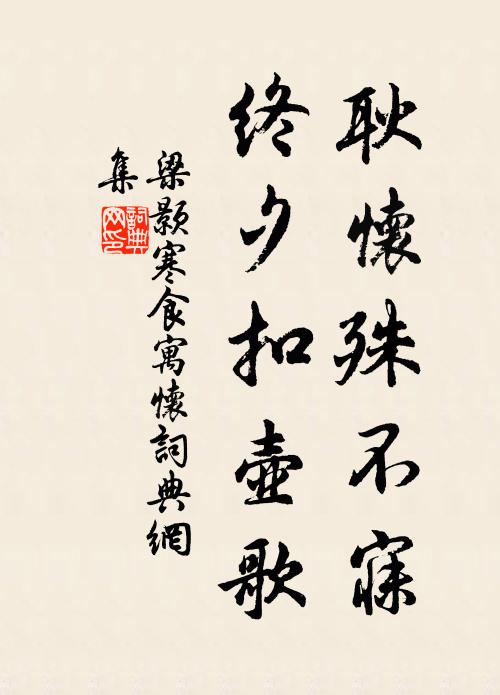 耿懷殊不寐
終夕扣壺歌
梁顥寒食寓懷詞典網
集
詞典
网